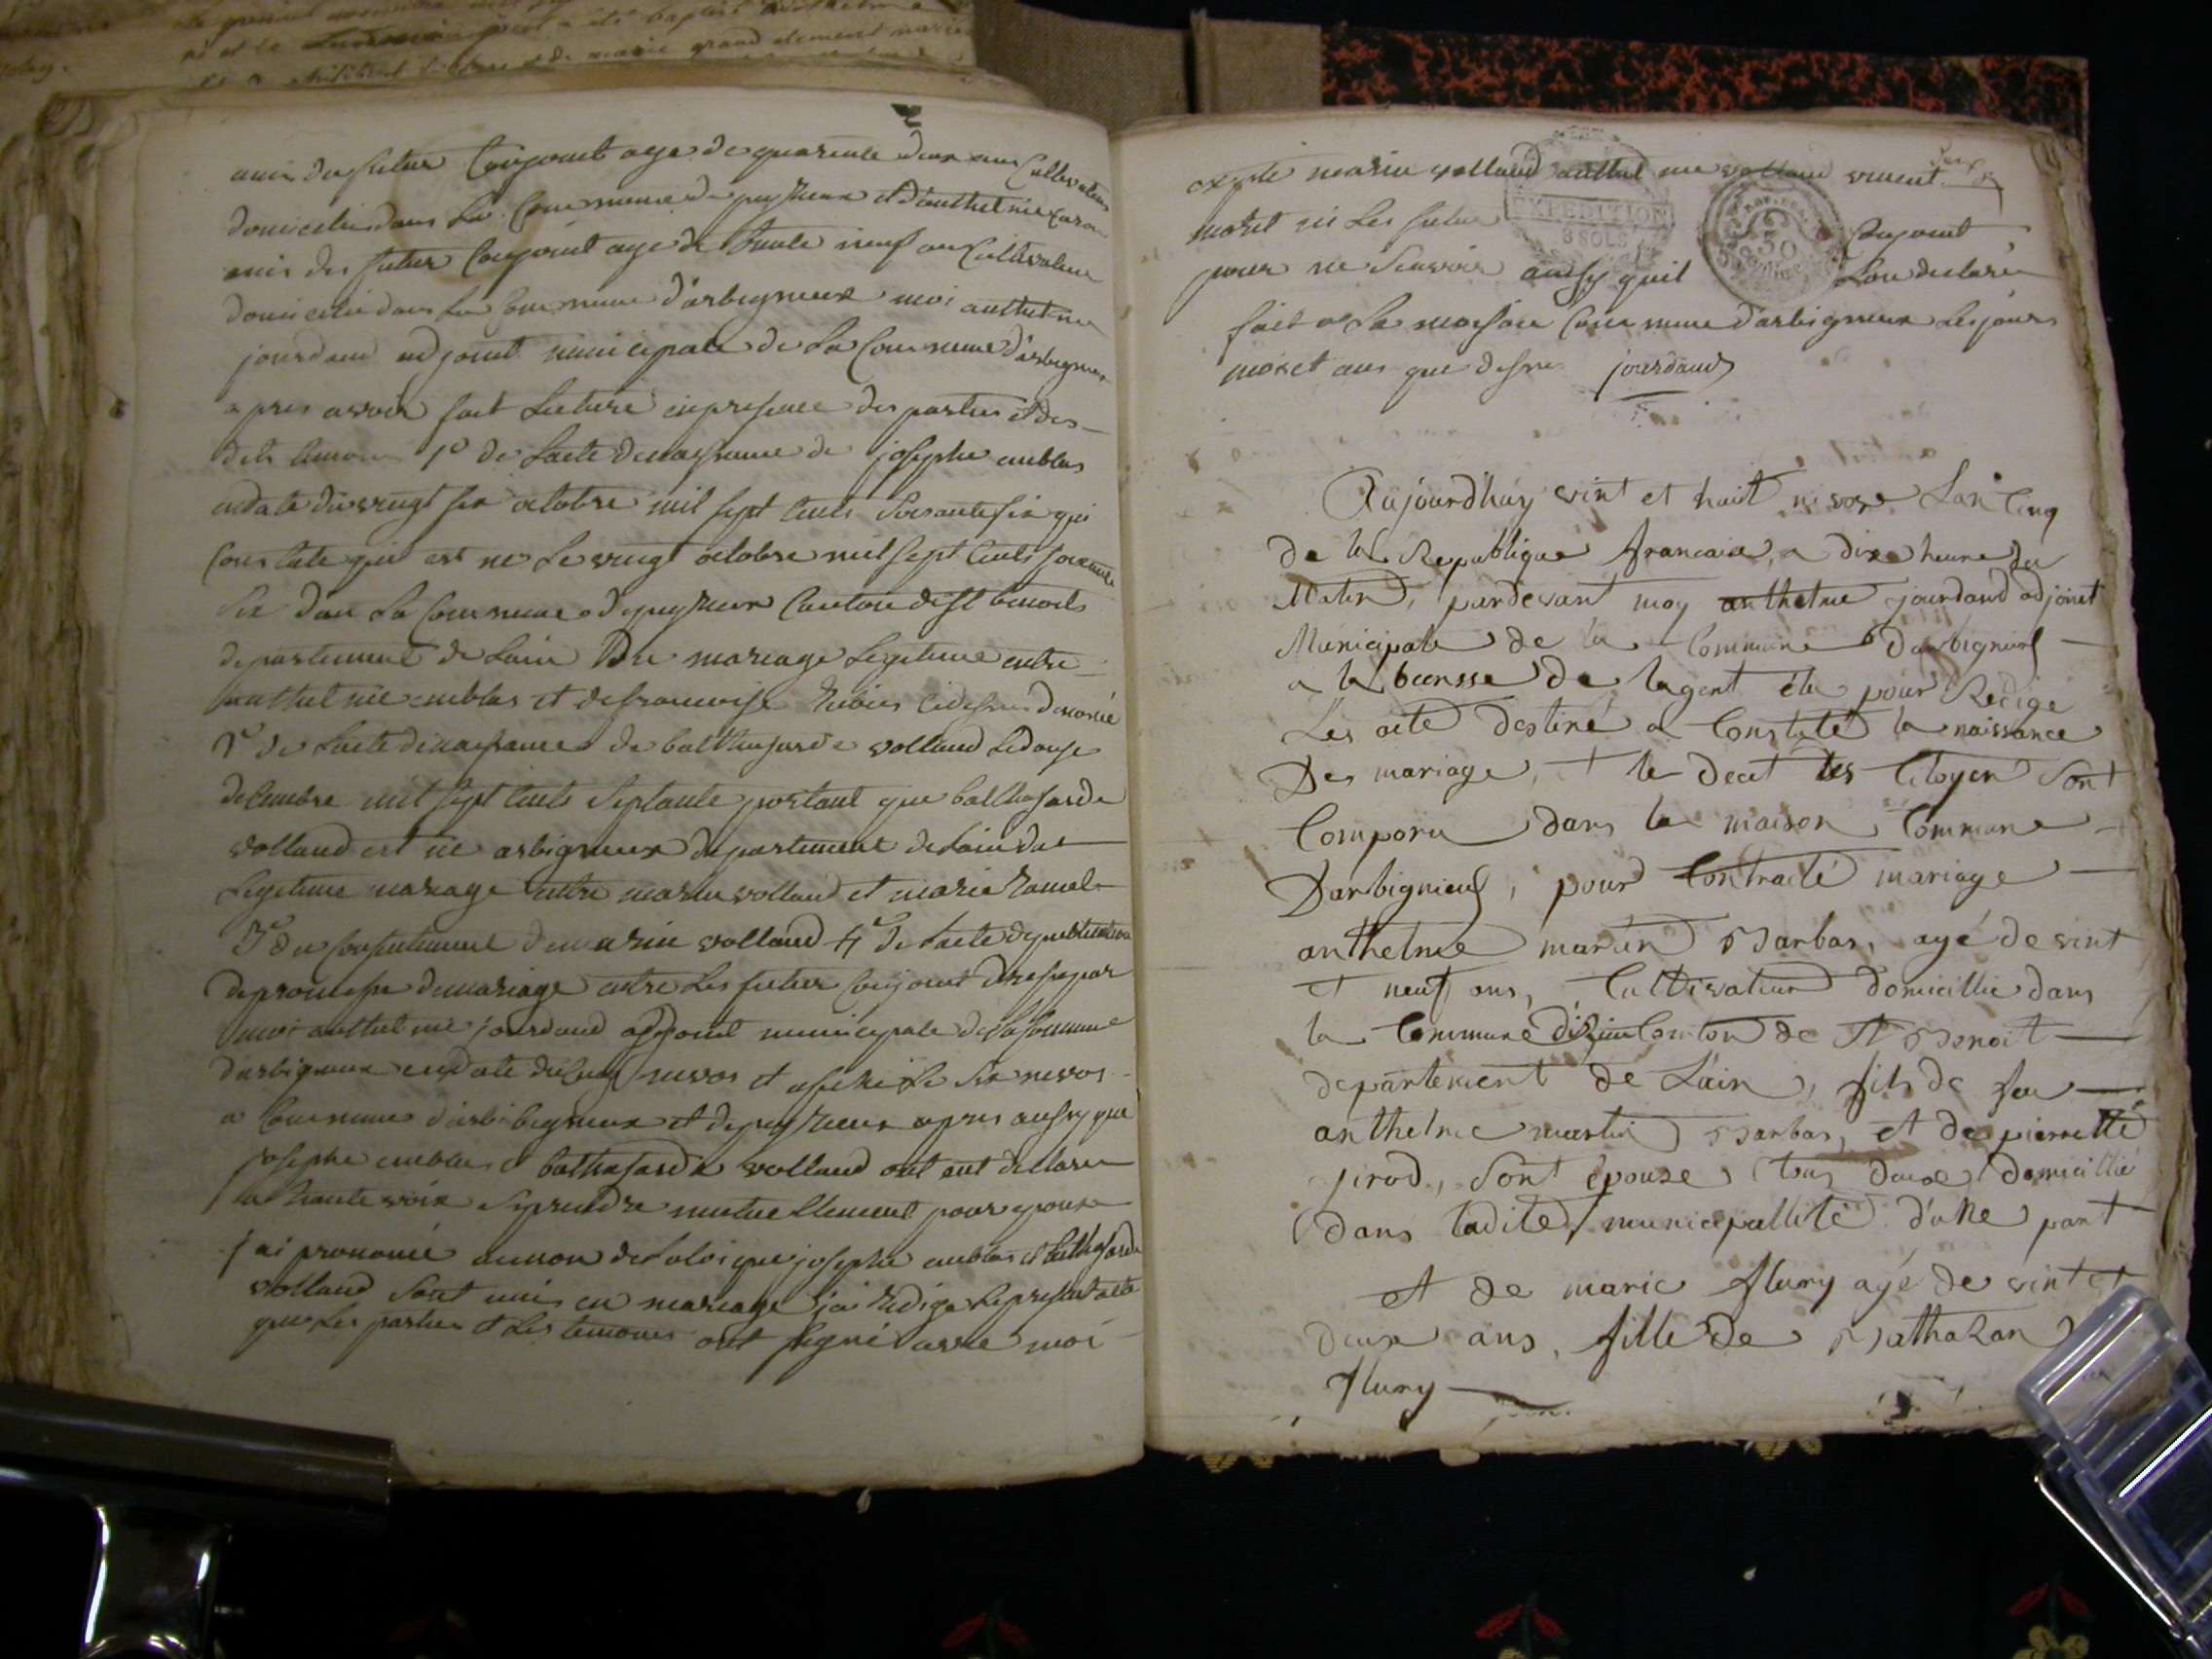 amis du futur Conjoint age de quarente deux ans Cultivateur
domicilié dans La Commune de peyzieux et d'anthelme
amis du futur Conjoint age de trente neuf ans Cultivateur
domicilié dans La Commune d'arbignieux moi anthelme
jourdand adjoint municipale de La Commune d'arbignieux
apres avoir fait Lecture en presence des parties et des
dits temoins 1º de Lacte denaissance de josephe emblas
endate du vingt six octobre mil sept Cents Soixante six qui
Constate qui est ne Le vingt octobre mil sept Cents soixante
Six dan La Commune depeyzieux Canton de St benoits
departement de Lain Du mariage Legetime entre
anthelme emblas et de francoise Cidesus denomé
2º de Lacte denaissance de balthasarde volland Ledouze
decembre mil sept Cents Septante portant que balthasarde
volland est ne arbignieux departement deLain du
Legetime mariage entre marin volland et marie
3º du Consentement de marin volland 4º de Lacte depublication
de promesse demariage entre Les futur Conjoint dressé par
moi anthelme jourdand adjoint municipale de La Commune
d'arbignieux endate du Cinq nivos et afiché Le Six nivos
a Commune d'arbignieux et depeyzieux apres aussy que
josephe emblas et balthasarde volland ont ent declarer
a haute voix Seprendre mutuellement pour epoux
jai prononcé aunon de La Loi que josephe emblas et balthasarde
volland Sont unis en mariage jai Redige Lepresent acte
que Les parties et Les temoins ont Signé avec moi
exepte marin volland anthelme volland vincent
moret ni Les futur Conjoint
pour ne Scavoir aussy quil Lon declarer
fait a La maison Commune d'arbignieux Les jours
moiset ans que desus jourdand
EXPEDITION
8 SOLS
50
Aujourdhuy vint et huit nivose Lan Cinq
de la Republique francaise, a dixe heure du
Matin, pardevant moy anthelme jourdand adjoint
Municipale de la Commune Darbignieu
a labcensse de lagent élu pour Redige
Les acte destiné a Constaté la naissance
Des mariage, et le decet des Citoyen Sont
Comparu dans la maison Commune
Darbignieu, pour Contracté mariage
anthelme martin Barbas, agé de vint
et neuf ans, Cultivateur domicillie dans
la Commune Canton de St Benoit
departement de L'ain, fils de feu
anthelme martin Barbas, et de pierrette
jirod, Sont épouse, tous deux domicillié
dans ladite municipallité d'une part
et de marie flury agé de vint et
deux ans, fille de Balthazan
flury